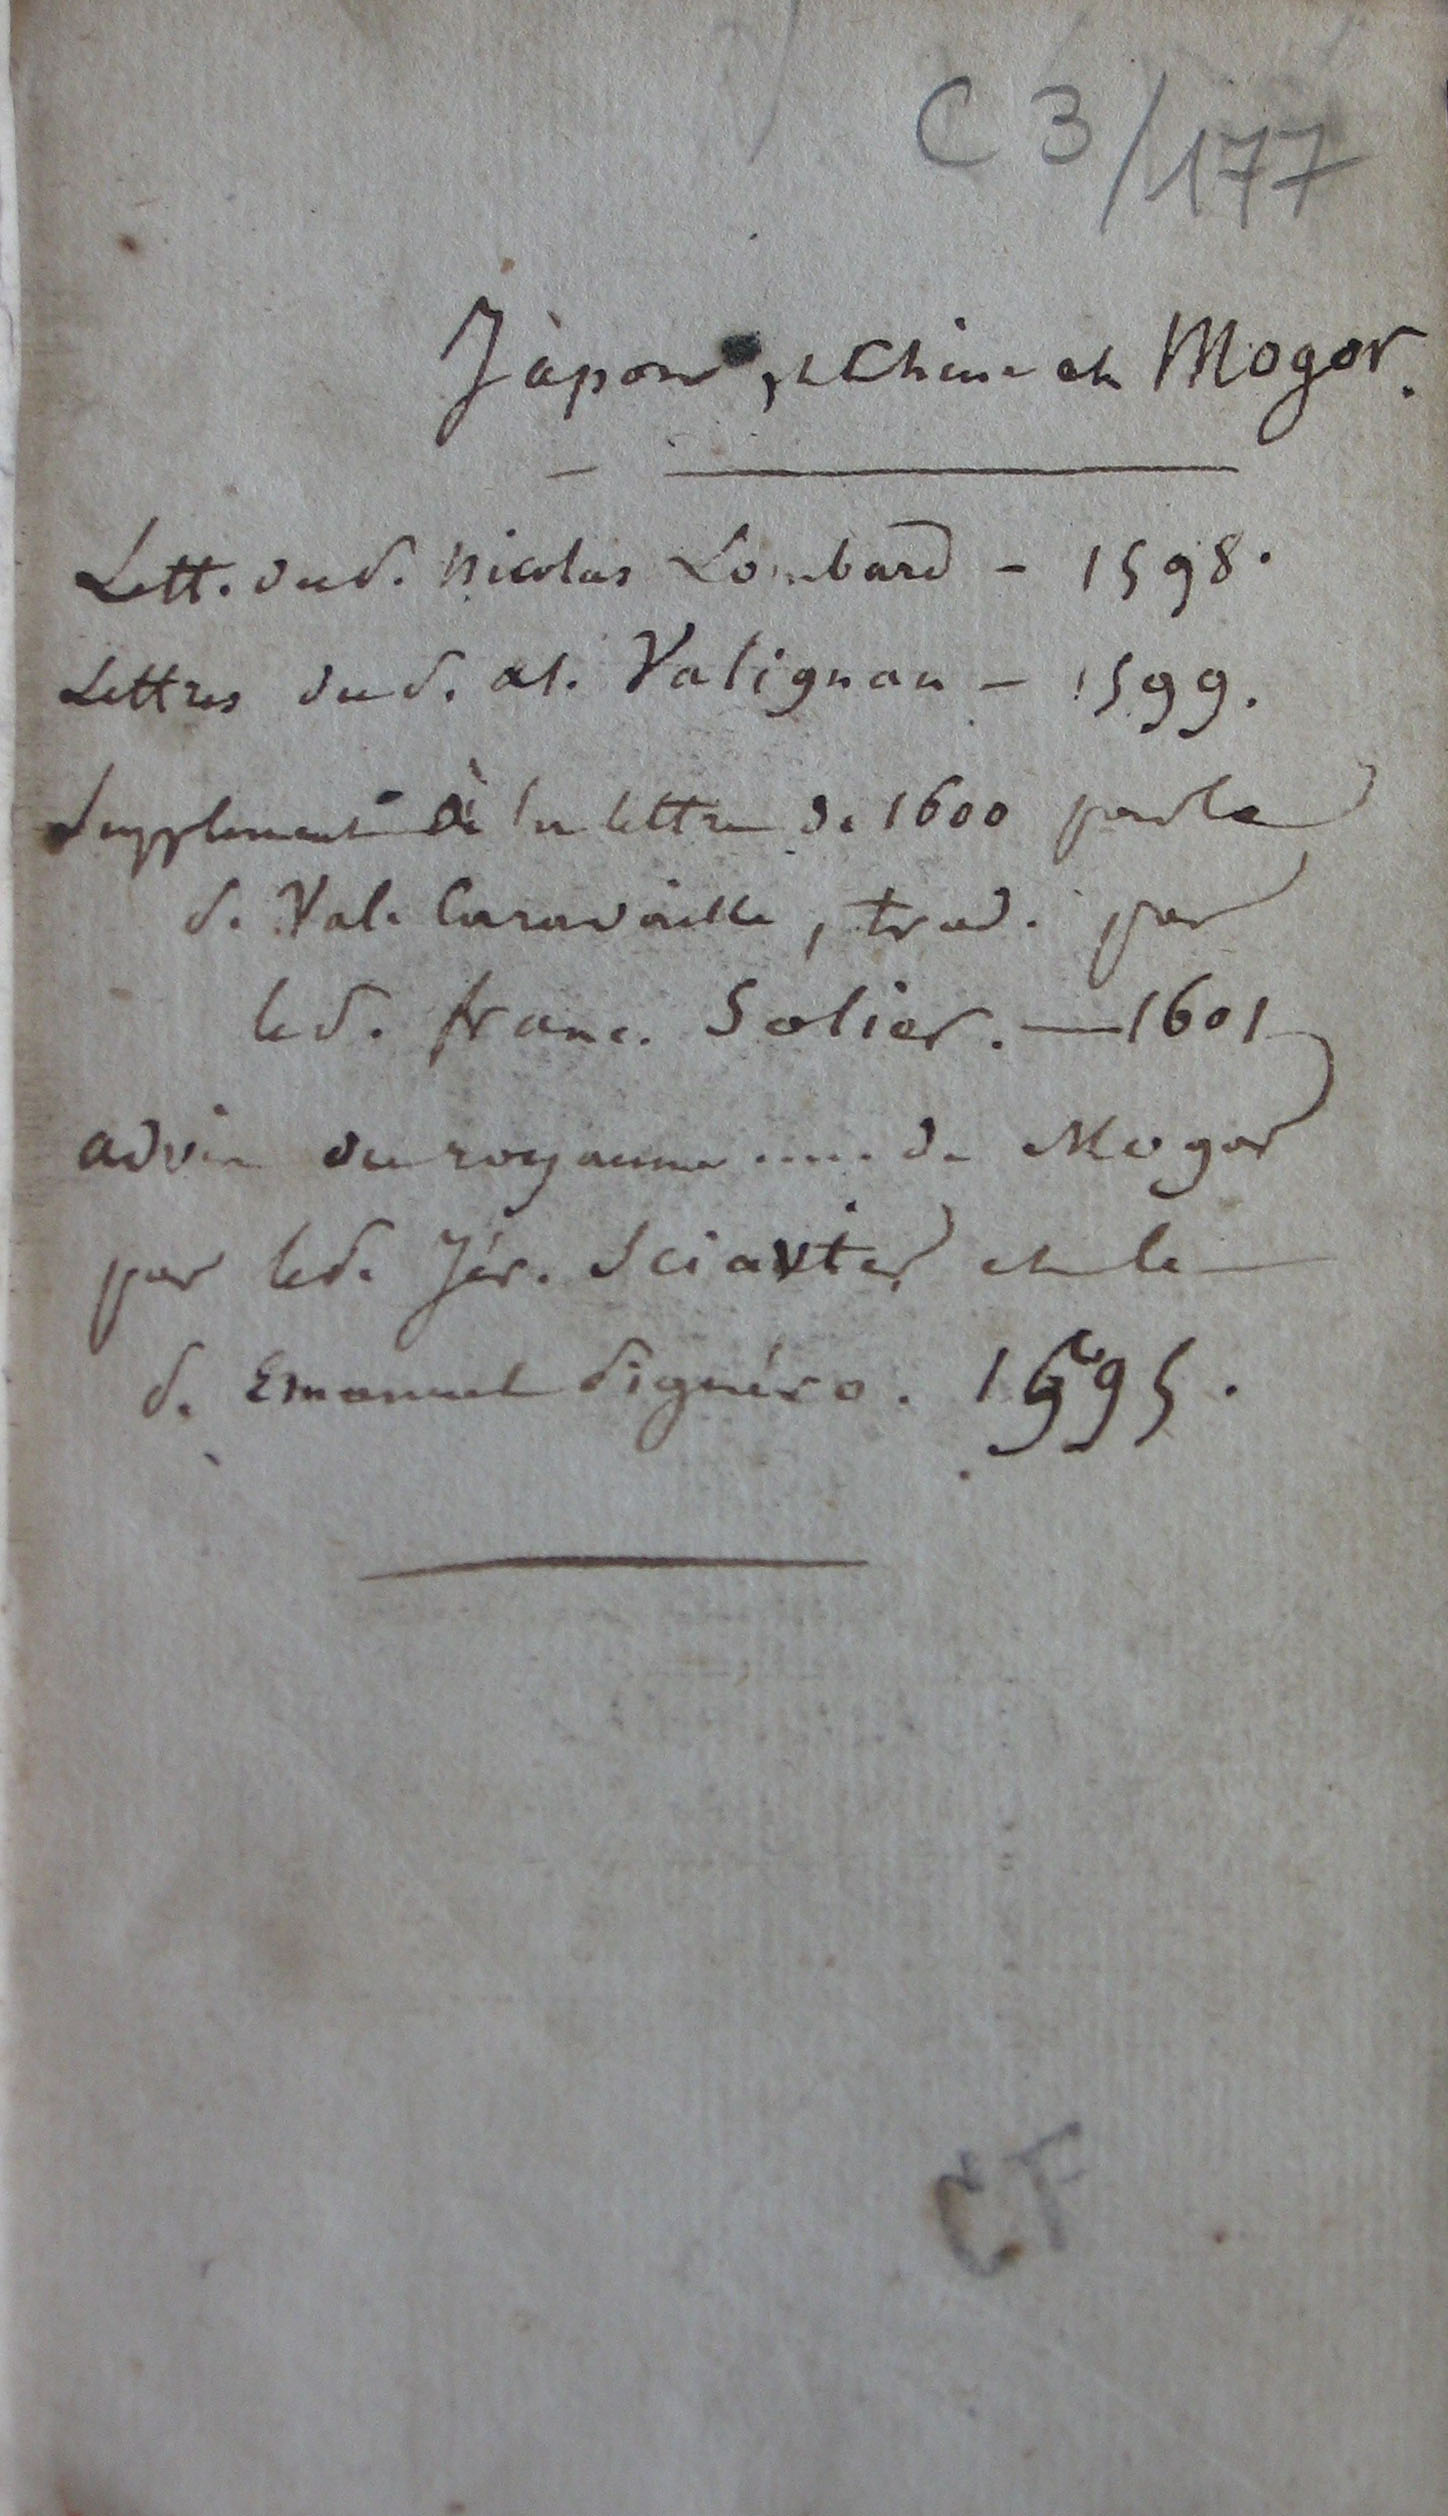 C 3/177
Japon, Chine et Mogor.
Lett. du P. Nicolas Lombard - 1598.
Lettres du P. Al. Valignan - 1599.
Supplement à la lettre de 1600 par le
P. Val. Caravaille, trad. par
le P. Franc. Solier. — 1601
advis du royaume .... de Mogor
par le P. Jér. Sciavier et le
P. Emanuel Pignéro. 1595.
CF